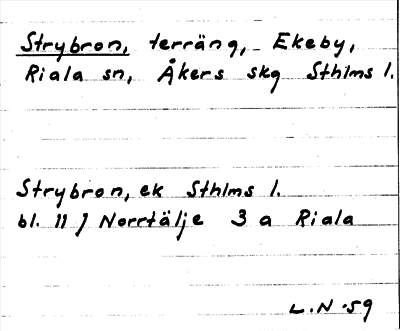 Strybron, terräng, Ekeby,
Riala sn, Åkers skg Sthlms l.
Strybron, ek Sthlms l.
bl. 11 J Norrtälje 3 a Riala
L.N -59